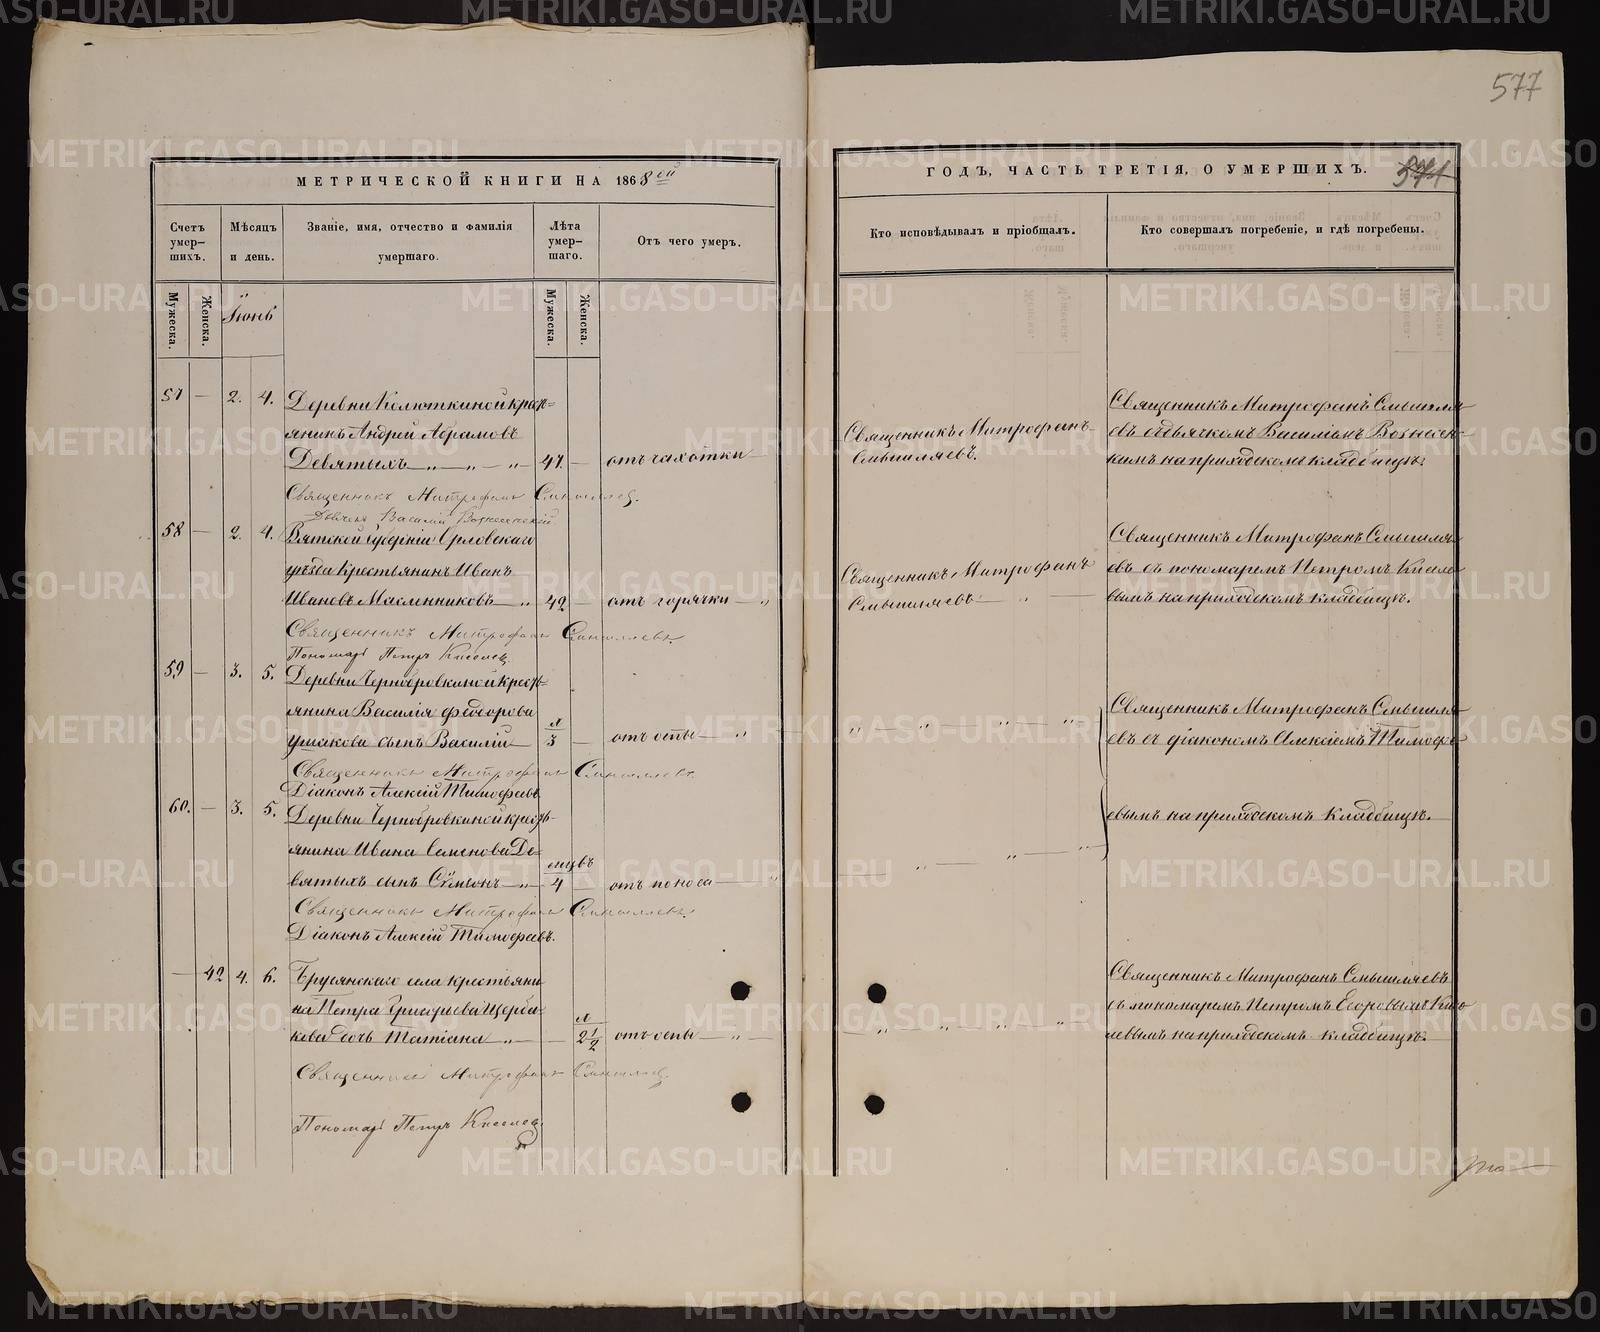 577
МЕТРИЧЕСКОЙ КНИГИ НА 1868ой
ГОДЪ, ЧАСТЬ ТРЕТІЯ, О УМЕРШИХЪ.
Счетъ умер-шихъ.
Мѣсяцъ и день.
Званіе, имя, отчество и фамилія умершаго.
Лѣта умер-шаго.
Отъ чего умеръ.
Кто исповѣдывалъ и пріобщалъ.
Кто совершалъ погребеніе, и гдѣ погребены.
Мужеска.
Женска.
Іюнь
Мужеска.
Женска.
57 — 2. 4. Деревни Колюткиной крест=
янинъ Андрей Абрамовъ
Девятыхъ 47 — отъ чахотки
Священникъ Митрофанъ
Смышляевъ.
Священникъ Митрофанъ Смышля
евъ съ дьячкомъ Василіемъ Вознесен-
скимъ на приходскомъ кладбищѣ.
Священникъ Митрофанъ Смышляевъ.
Дьячекъ Василій Вознесенскій
58 — 2. 4. Вятской Губерніи Орловскаго
уѣзда Крестьянинъ Иванъ
Ивановъ Масленниковъ 42 — отъ горячки
Священникъ Митрофанъ
Смышляевъ
Священникъ Митрофанъ Смышля
евъ съ пономаремъ Петромъ Киселе
вымъ на приходскомъ кладбищѣ.
Священникъ Митрофанъ Смышляевъ.
Пономарь Петръ Киселевъ
59 — 3. 5. Деревни Чернобровкиной кресть-
янина Василія Федорова
Ушакова сынъ Василій л 3 — отъ оспы
Священникъ Митрофанъ Смышля
евъ съ діакономъ Алексіемъ Тимофе
евымъ на приходскомъ кладбищѣ.
Священникъ Митрофанъ Смышляевъ.
Діаконъ Алексій Тимофеевъ
60. — 3. 5. Деревни Чернобровкиной кресть-
янина Ивана Семенова Де-
вятыхъ сынъ Сѵмеонъ мцвъ 4 — отъ поноса
Священникъ Митрофанъ Смышляевъ.
Діаконъ Алексій Тимофеевъ.
— 42 4. 6. Брусянскаго села крестьяни
на Петра Григорьева Щерба-
кова дочь Татіана — л 2 1/2 отъ оспы
Священникъ Митрофанъ Смышляевъ
съ пономаремъ Петромъ Егоровымъ Кисе
левымъ на приходскомъ кладбищѣ.
Священникъ Митрофанъ Смышляевъ.
Пономарь Петръ Киселевъ.
METRIKI.GASO-URAL.RU